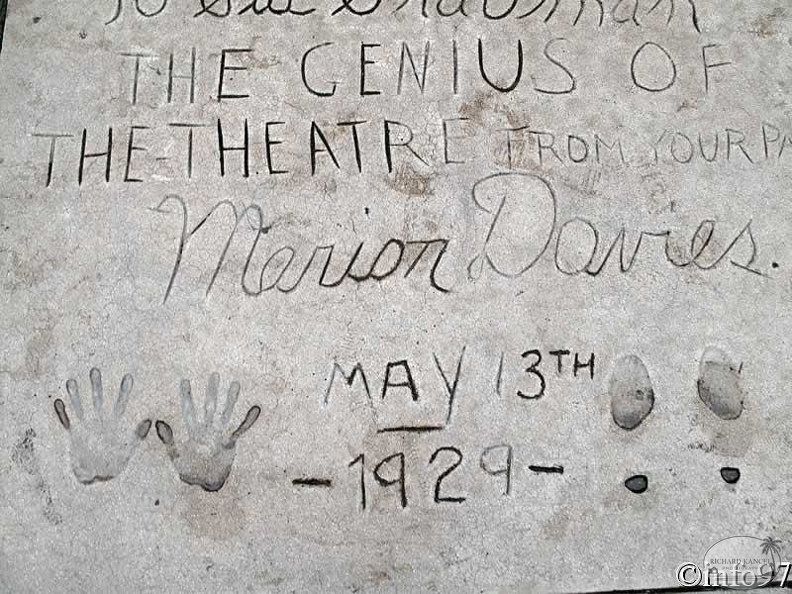 To Sid Grauman
THE GENIUS OF
THE THEATRE FROM YOUR PA
Marion Davies.
MAY 13TH
-1929-
RICHARD KANCEL
©mfo97